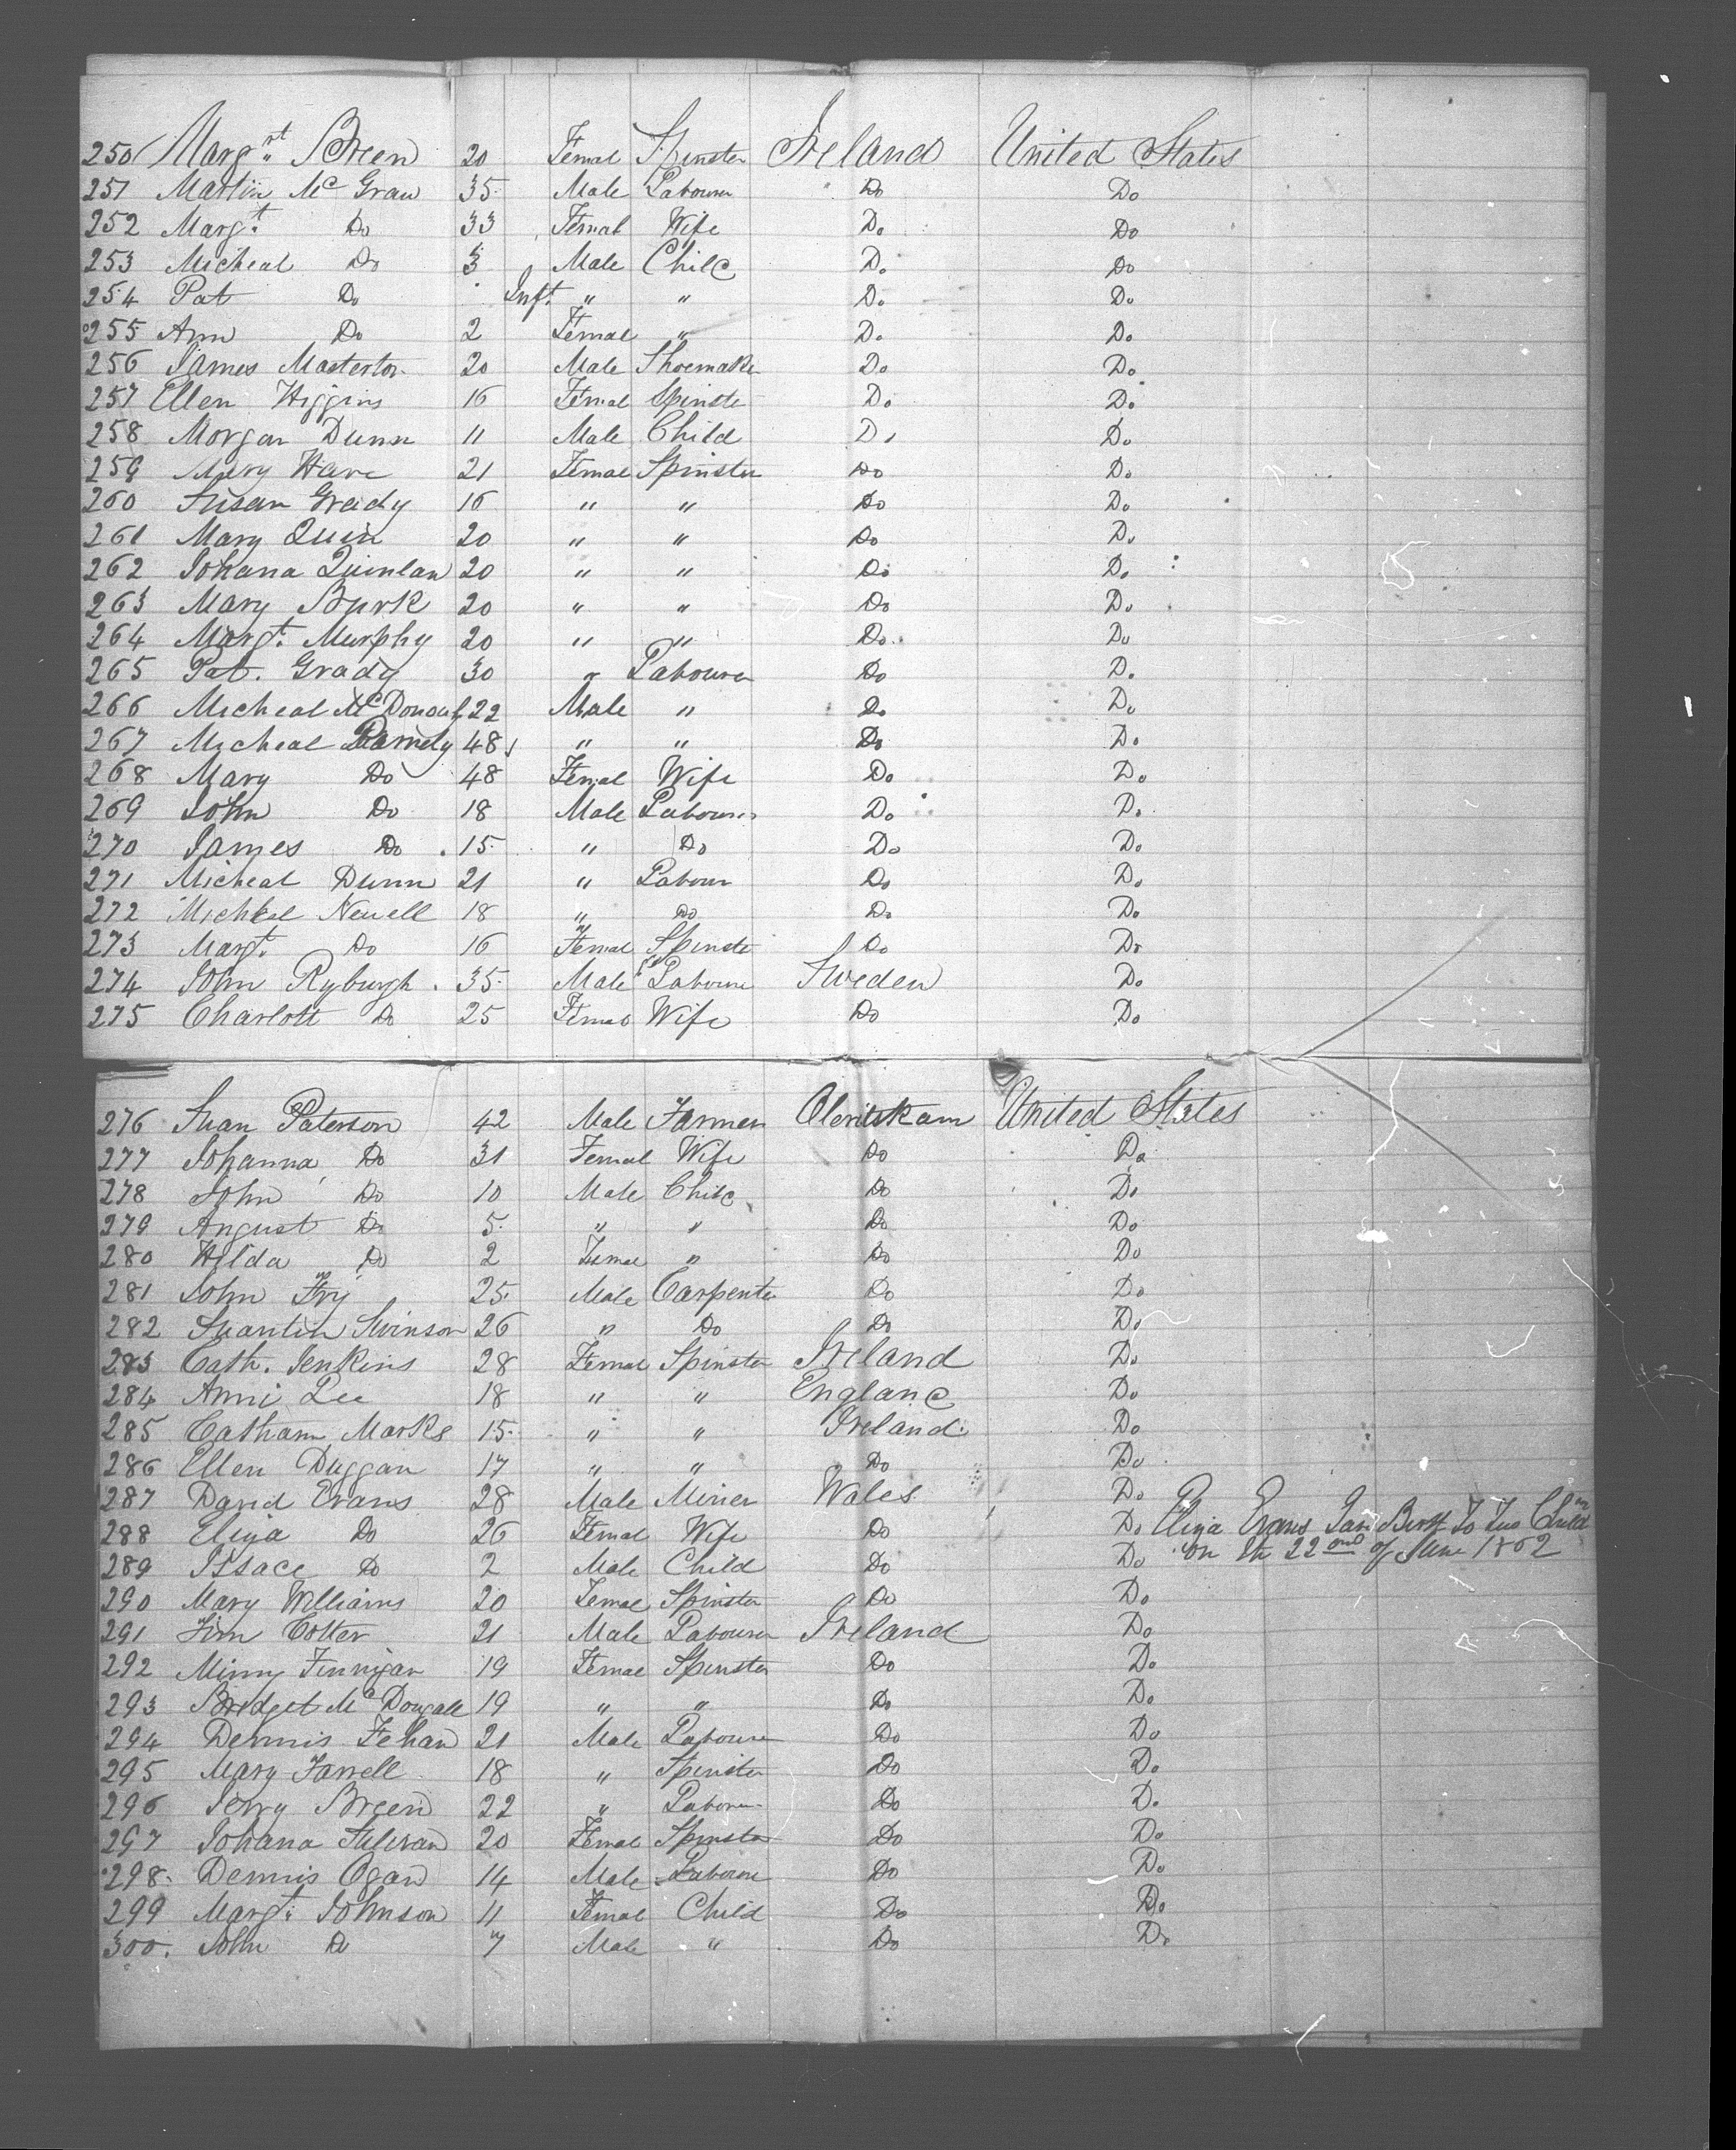 250 Margrt Breen 20 Femal Spinster Ireland United States
251 Martin Mc Graw 35 Male Labourer Do Do
252 Margt. Do 33 Femal Wife Do Do
253 Micheal Do 3 Male Chile Do Do
254 Pat Do Inft. " " Do Do
255 Ann Do 2 Female " Do Do
256 James Masterton 20 Male Shoemaker Do Do
257 Ellen Higgins 16 Femal Spinste Do Do
258 Morgan Dunn 11 Male Child Do Do
259 Mary Hare 21 Femal Spinster Do Do
260 Susan Grady 16 " " Do Do
261 Mary Quin 20 " " Do Do
262 Johana Quinlan 20 " " Do Do
263 Mary Burk 20 " " Do Do
264 Margt. Murphy 20 " " Do Do
265 Pat. Grady 30 " Labourer Do Do
266 Micheal Mc Donough 22 Male " Do Do
267 Micheal 48 " " Do Do
268 Mary Do 48 Femal Wife Do Do
269 John Do 18 Male Labourer Do Do
270 James Do 15 " Do Do Do
271 Micheal Dunn 21 " Labour Do Do
272 Micheal Newell 18 " Do Do Do
273 Margt. Do 16 Femal Spinste Do Do
274 John Ryburgh 35 Male Laboure Sweden Do
275 Charlott Do 25 Femal Wife Do Do
276 Paterson 42 Male Farmer United States
277 Johanna Do 31 Femal Wife Do Do
278 John Do 10 Male Chile Do Do
279 August Do 5 " " Do Do
280 Hilda Do 2 Femal " Do Do
281 John Fry 25 Male Carpenter Do Do
282 Swinson 26 " Do Do Do
283 Cath. Jenkins 28 Femal Spinster Ireland Do
284 Anni Lee 18 " " Englane Do
285 Catharn Marks 15 " " Ireland Do
286 Ellen Duggan 17 " " Do Do
287 David Evans 28 Male Miner Wales Do
288 Eliza Do 26 Femal Wife Do Do Eliza Evans Gav Birth To Two Childn
289 Issace Do 2 Male Child Do Do on th 22ond of June 1862
290 Mary Williams 20 Femal Spinster Do Do
291 Tim Cotter 21 Male Labourer Ireland Do
292 Minny Finnigan 19 Femal Spinster Do Do
293 Bridget Mc Dougall 19 " " Do Do
294 Dennis Fehan 21 Male Laboure Do Do
295 Mary Farrell 18 " Spinster Do Do
296 Jerry Breen 22 " Laboure Do Do
297 Johana Sulivan 20 Femal Spinster Do Do
298 Dennis Ogan 14 Male Laboure Do Do
299 Margt. Johnson 11 Femal Child Do Do
300. John Do 7 Male " Do Do